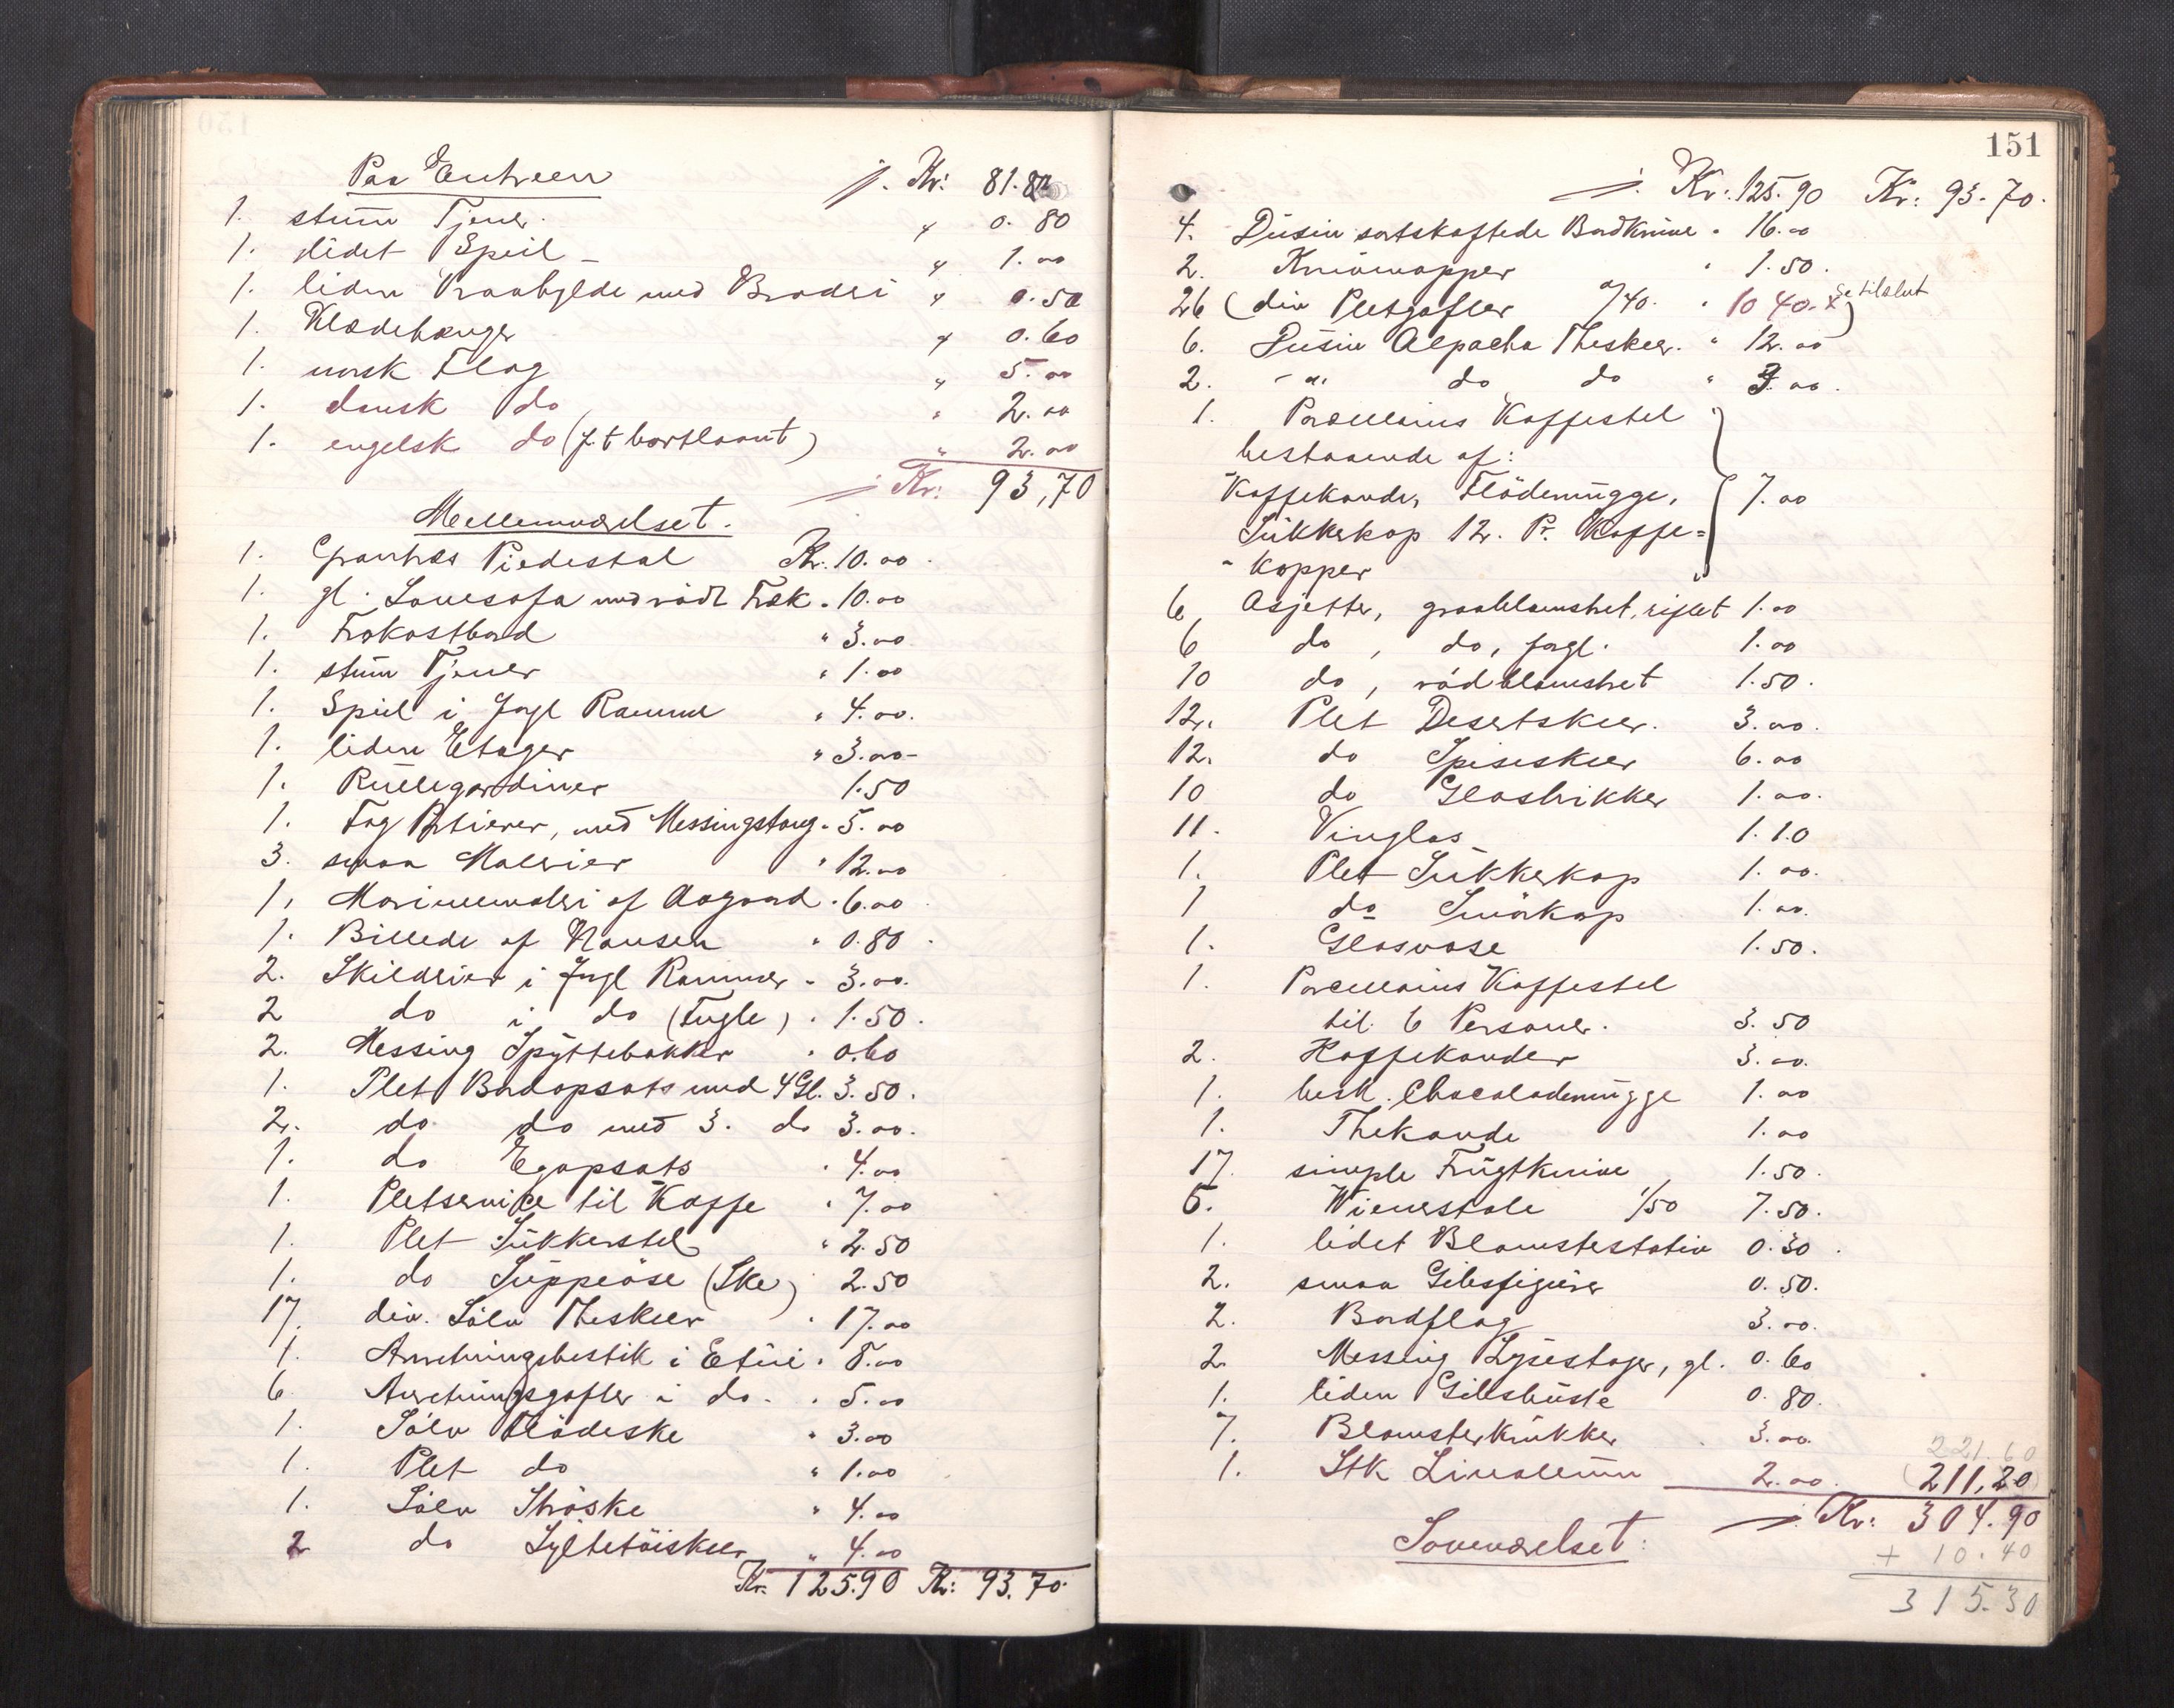 Paa Entreen j. Kr: 81.80
1. stum Tjener. " 0.80
1. lidet Speil - " 1.00
1. liden Vraahylde med Broderi " 0.50
1. Klædehænger " 0.60
1. norsk Flag " 5.00
1. dansk do " 2.00
1. engelsk do (f.t. bortlaant) " 2.00
Kr: 93,70
Mellemværelset.
1. Piedestal Kr. 10.00
1. gl. Sovesofa med rödt Træk " 10.00
1. Frokostbord " 3.00
1. stum Tjener " 1.00
1. Speil i forgl Ramme " 4.00.
1. liden Etager " 3.00-
1. Rullegardiner 1.50
1. Fag Portierer, med Messingstang " 5.00
3. smaa Malerier " 12.00
1. Marinemaleri af Aagaard " 6.00
1. Billede af Nansen " 0.80
2. Skilderier i forgl Rammer " 3.00.
2 do i do (Fugle) " 1.50.
2. Messing Spyttebakker " 0.60
1. Plet Bordopsats med 4 Gl. 3.50.
2. do do med 3. do 3.00.
1. do Egopsats " 4.00
1. Pletservice til Kaffe " 7.00
1. Plet Sukkerstel " 2.50
1. do Suppeöse (Ske) 2.50
17 div. Sölv Theskeer " 17.00
1. Anretningsbestik i Etui " 8.00
6 Anretningsgafler i do. " 5.00
1. Sölv Flödeske " 3.00
1. Plet do " 1.00
1. Sölv Ströske " 4.00
2 do Syltetöiskeer " 4.00
Kr. 125.90 Kr: 93.70.
151
j. Kr: 125.90 Kr: 93.70.
4. Dusin sortskaftede Bordknive " 16.00
2. Knivmopper " 1.50.
26 (div Pletgafler a/40. " 10 40. x) Se tilslut
6. Dusin Alpacha Theskeer. " 12.00
2. - " do do " 3.00.
1. Porcellains Kaffestel
bestaaende af:
Kaffekander, Flödemugge, 7.00
Sukkerkop 12. Pr. Kaffe=
- kopper
6 Asjetter, graablomstret, riflet 1.00
6 do, do, forgl. 1.00
10 do, rödblomstret 1.50.
12. Plet Desertskeer. 3.00.
12. do Spiseskeer 6.00
10 do Glasbrikker 1.00.
11. Vinglas 1.10
1. Plet Sukkerkop 1.00.
1 do Smörkop 1.00.
1. Glasvase 1.50.
1. Porcellains Kaffestel
til 6 Personer. 3.50
2. Kaffekander 3.00.
1. besk. Chocolademugge 1.00
1. Thekande 1.00
17. simple Frugtknive 1.50.
5. Wienerstole 1/50 7.50.
1. lidet Blomsterstativ 0.30.
2. smaa Gibsfigurer 0.50.
2. Bordflag 3.00.
2. Messing Lysestager, gl. 0.60
1. liden Gibsbuste 0.80.
7. Blomsterkrukker 3.00.
221.60
1. Stk Linoleum 2.00. (211,20)
Kr: 304.90
Soveværelset:
+ 10.40
315.30